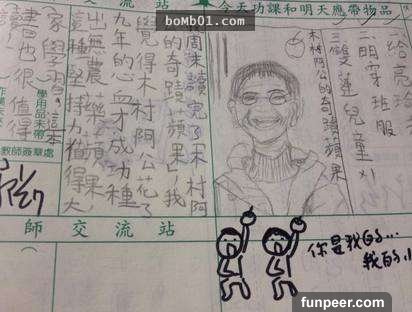 bomb01.com
交流站
今天功課和明天應帶物品
二明穿班服
三雙蓮兒童
木村阿公的奇蹟蘋果
周末讀完了木村阿
的奇蹟蘋果,我
覺得木村阿公花了
九年的心血才成功種
出無農藥蘋果
堅持力值得大
家學習,這本
書也很值得
學用品未帶
教師簽章處
師交流站
你是我的...
我的小
funpeer.com